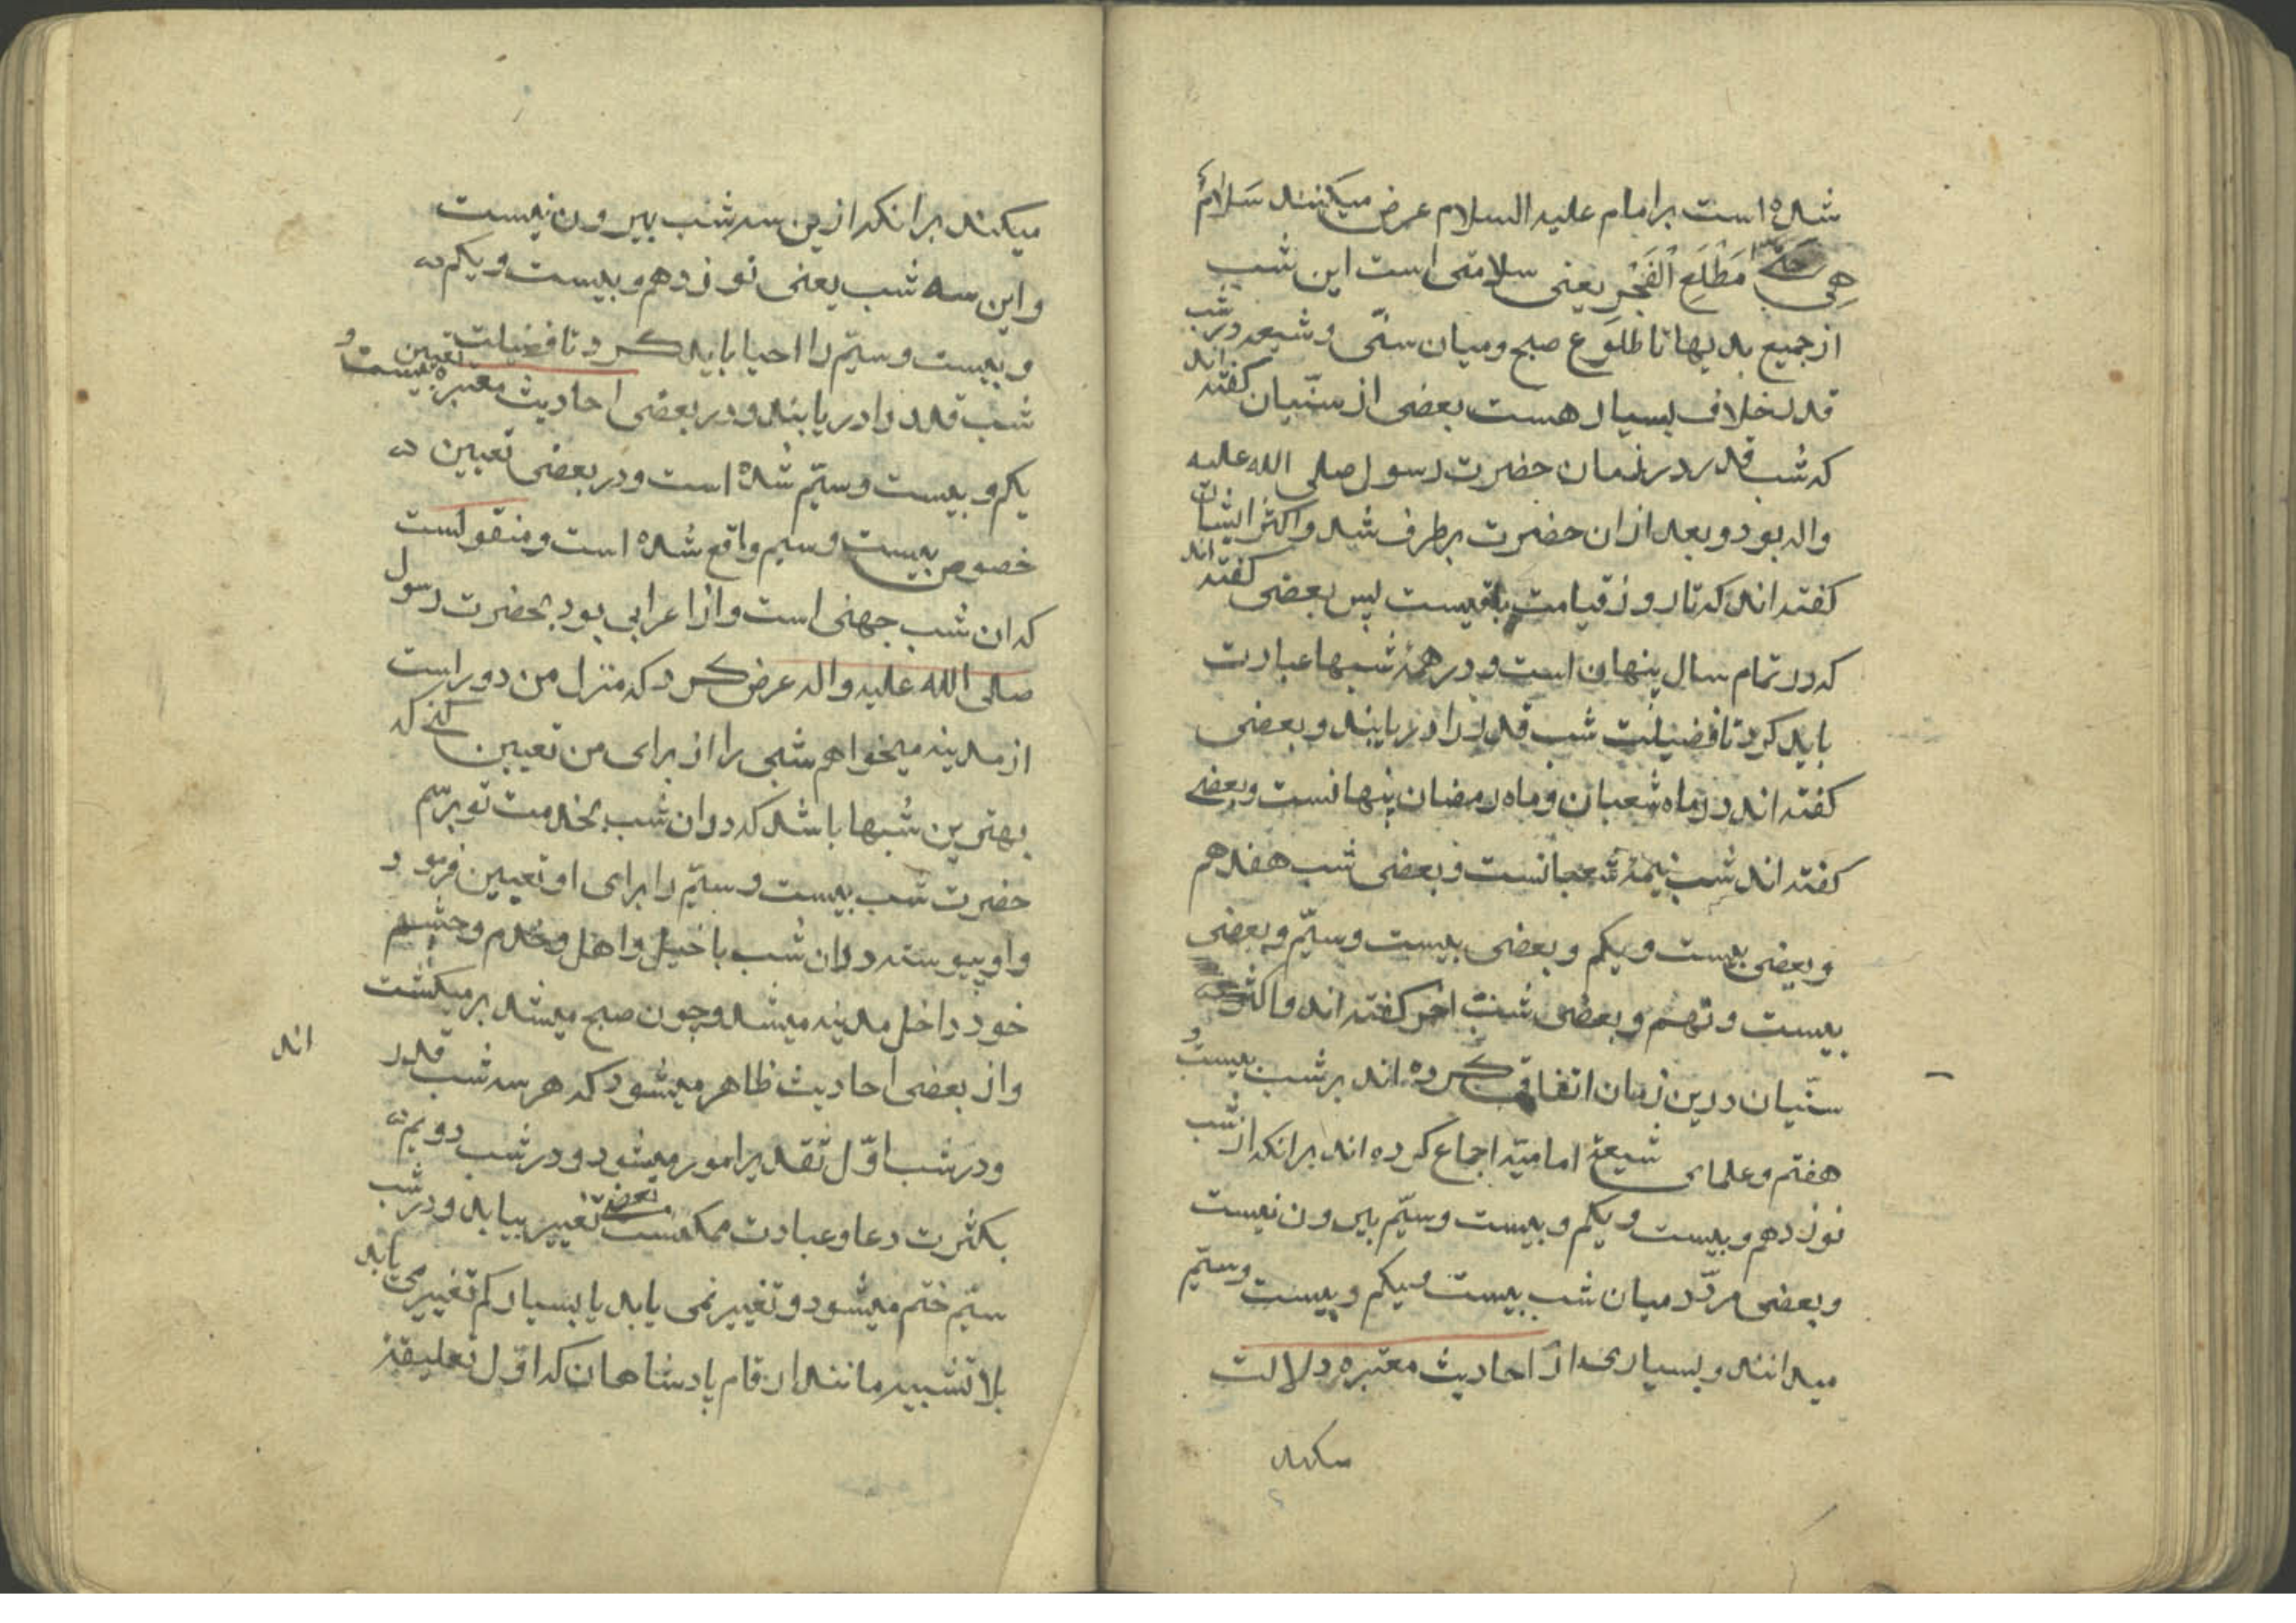 شده است بر امام علیه السلام عرض میکنند سَلَامٌ
هِیَ حَتّٰی مَطْلَعِ الْفَجْرِ یعنی سلامتی است این شب
از جمیع بدیها تا طلوع صبح و میان سنّی و شیعه در شب
قدر خلاف بسیار هست بعضی از سنّیان کفته اند
که شب قدر در زمان حضرت رسول صلی الله علیه
واله بود و بعد از ان حضرت برطرف شد و اکثر ایشان
کفته اند که تا روز قیامت باقیست پس بعضی کفته اند
که در تمام سال پنهان است و در همهٔ شبها عبادت
باید کرد تا فضیلت شب قدر را دریابند و بعضی
کفته اند در ماه شعبان و ماه رمضان پنهانست و بعضی
کفته اند شب نیمهٔ شعبانست و بعضی شب هفدهم
و بعضی بیست و یکم و بعضی بیست و سیّم و بعضی
بیست و نهم و بعضی شب اخر کفته اند و اکثر
سنّیان درین زمان اتفاق کرده اند بر شب بیست و
هفتم و علمای شیعهٔ امامیّه اجماع کرده اند بر انکه از شب
نوزدهم و بیست و یکم و بیست و سیّم بیرون نیست
و بعضی مردّد میان شب بیست و یکم و بیست و سیّم
میدانند و بسیاری از احادیث معتبره دلالت
میکند
میکند بر انکه ازین سه شب بیرون نیست
و این سه شب یعنی نوزدهم و بیست و یکم
و بیست و سیّم را احیا باید کرد تا فضیلت
شب قدر را دریابند و در بعضی احادیث معتبره تعیین بیست و
یکم و بیست و سیّم شده است و در بعضی تعیین
خصوص بیست و سیم واقع شده است و منقولست
که ان شب جهنی است و از اعرابی بود بحضرت رسول
صلی الله علیه واله عرض کرد که منزل من دور است
از مدینه میخواهم شبی را از برای من تعیین کنی که
بهترین شبها باشد که در ان شب بخدمت تو برسم
حضرت شب بیست و سیّم را برای او تعیین فرمود
و او پیوسته در ان شب با خیل و اهل و خدم و حشم
خود داخل مدینه میشد و چون صبح میشد بر میکشت
و از بعضی احادیث ظاهر میشود که هر سه شب قدر
اند
و در شب اوّل تقدیر امور میشود و در شب دویم
بکثرت دعا و عبادت ممکنست بعضی تغییر بیابد و در شب
سیّم ختم میشود و تغییر نمی یابد یا بسیار کم تغییر می یابد
بلا تشبیه مانند ارقام پادشاهان که اوّل تعلیقهٔ